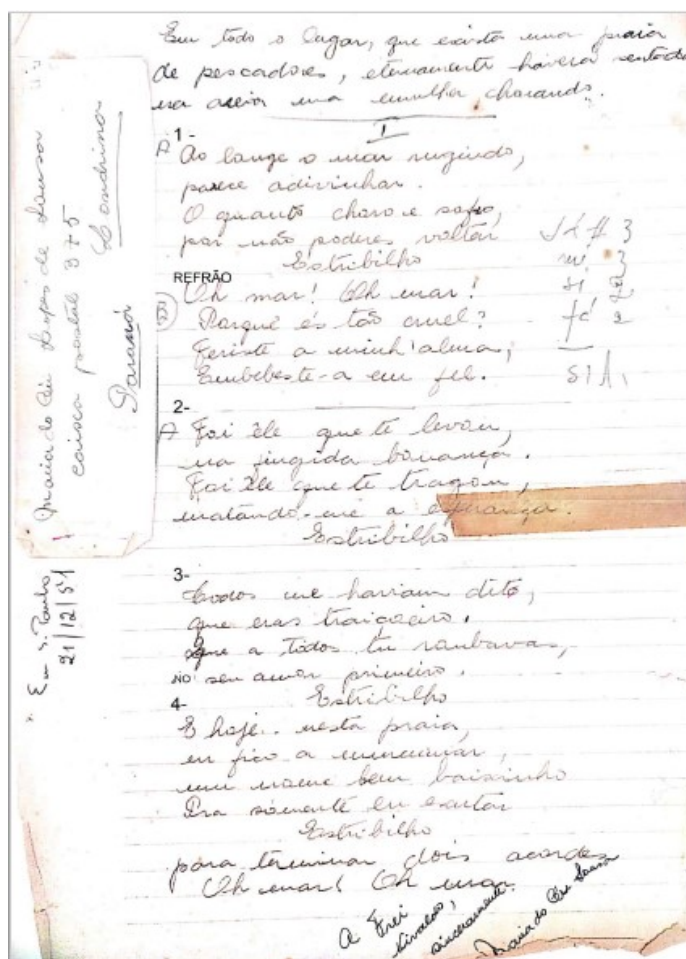 Em todo o lugar, que exista uma praia
de pescadores, eternamente haverá sentada
na areia uma mulher chorando.
I
1-
A Ao longe o mar rugindo,
parece adivinhar.
O quanto choro e sofro,
por não poderes voltar
Estribilho
REFRÃO
Oh mar! Oh mar!
Porquê és tão cruel?
Feriste a minh'alma,
Embebeste-a em fel.
3
mi 3
si 2
fá 2
SIA
2-
A Foi êle que te levou,
na fingida bonança.
Foi êle que te tragou,
matando-me a esperança.
Estribilho
3-
Todos me haviam dito,
que eras traiçoeiro.
que a todos tu roubavas,
NO seu amor primeiro.
Estribilho
4-
E hoje. nesta praia,
eu fico a murmurar,
um nome bem baixinho
Pra sòmente eu escutar
Estribilho
para terminar dois acordes
Oh mar! Oh mar.
A Frei
Nivaldo,
sinceramente
Maria do Céu Sousa
Maria do Céu Lopes de Sousa
caixa postal 375
Londrina
Paraná
Em S. Paulo
21/12/51